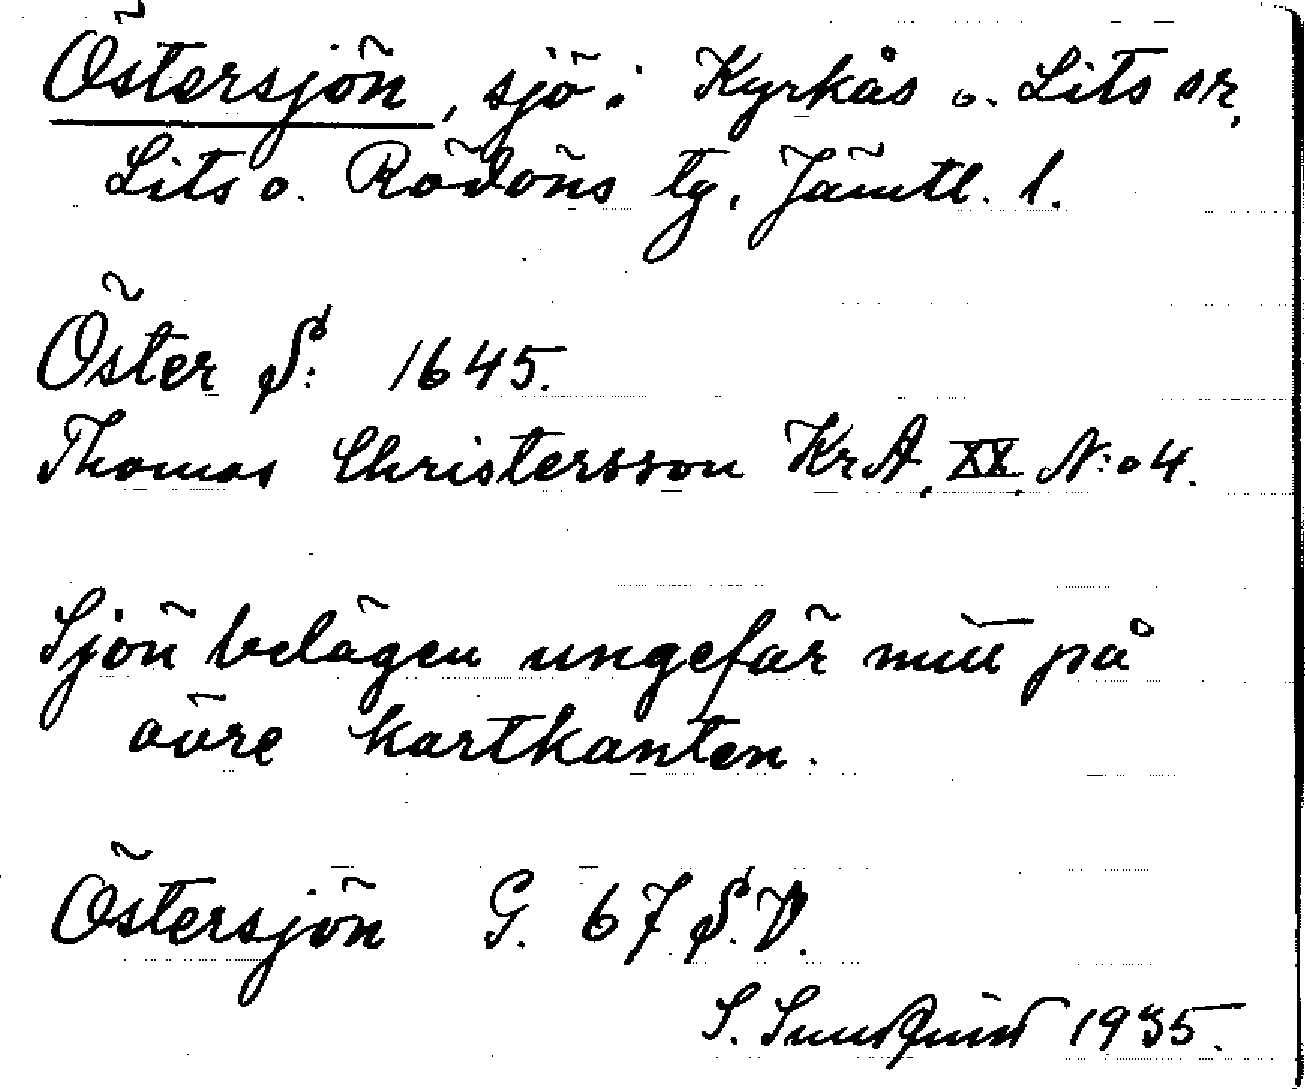 Östersjön, sjö i Kyrkås o. Lits snr,
Lits o. Rödöns tg. Jämtl. l.
Öster S: 1645.
Thomas Christersson KrA, XX, N:o 4.
Sjön belägen ungefär mitt på
övre kartkanten.
Östersjön G. 67 S.V.
S. Sundqvist 1935.